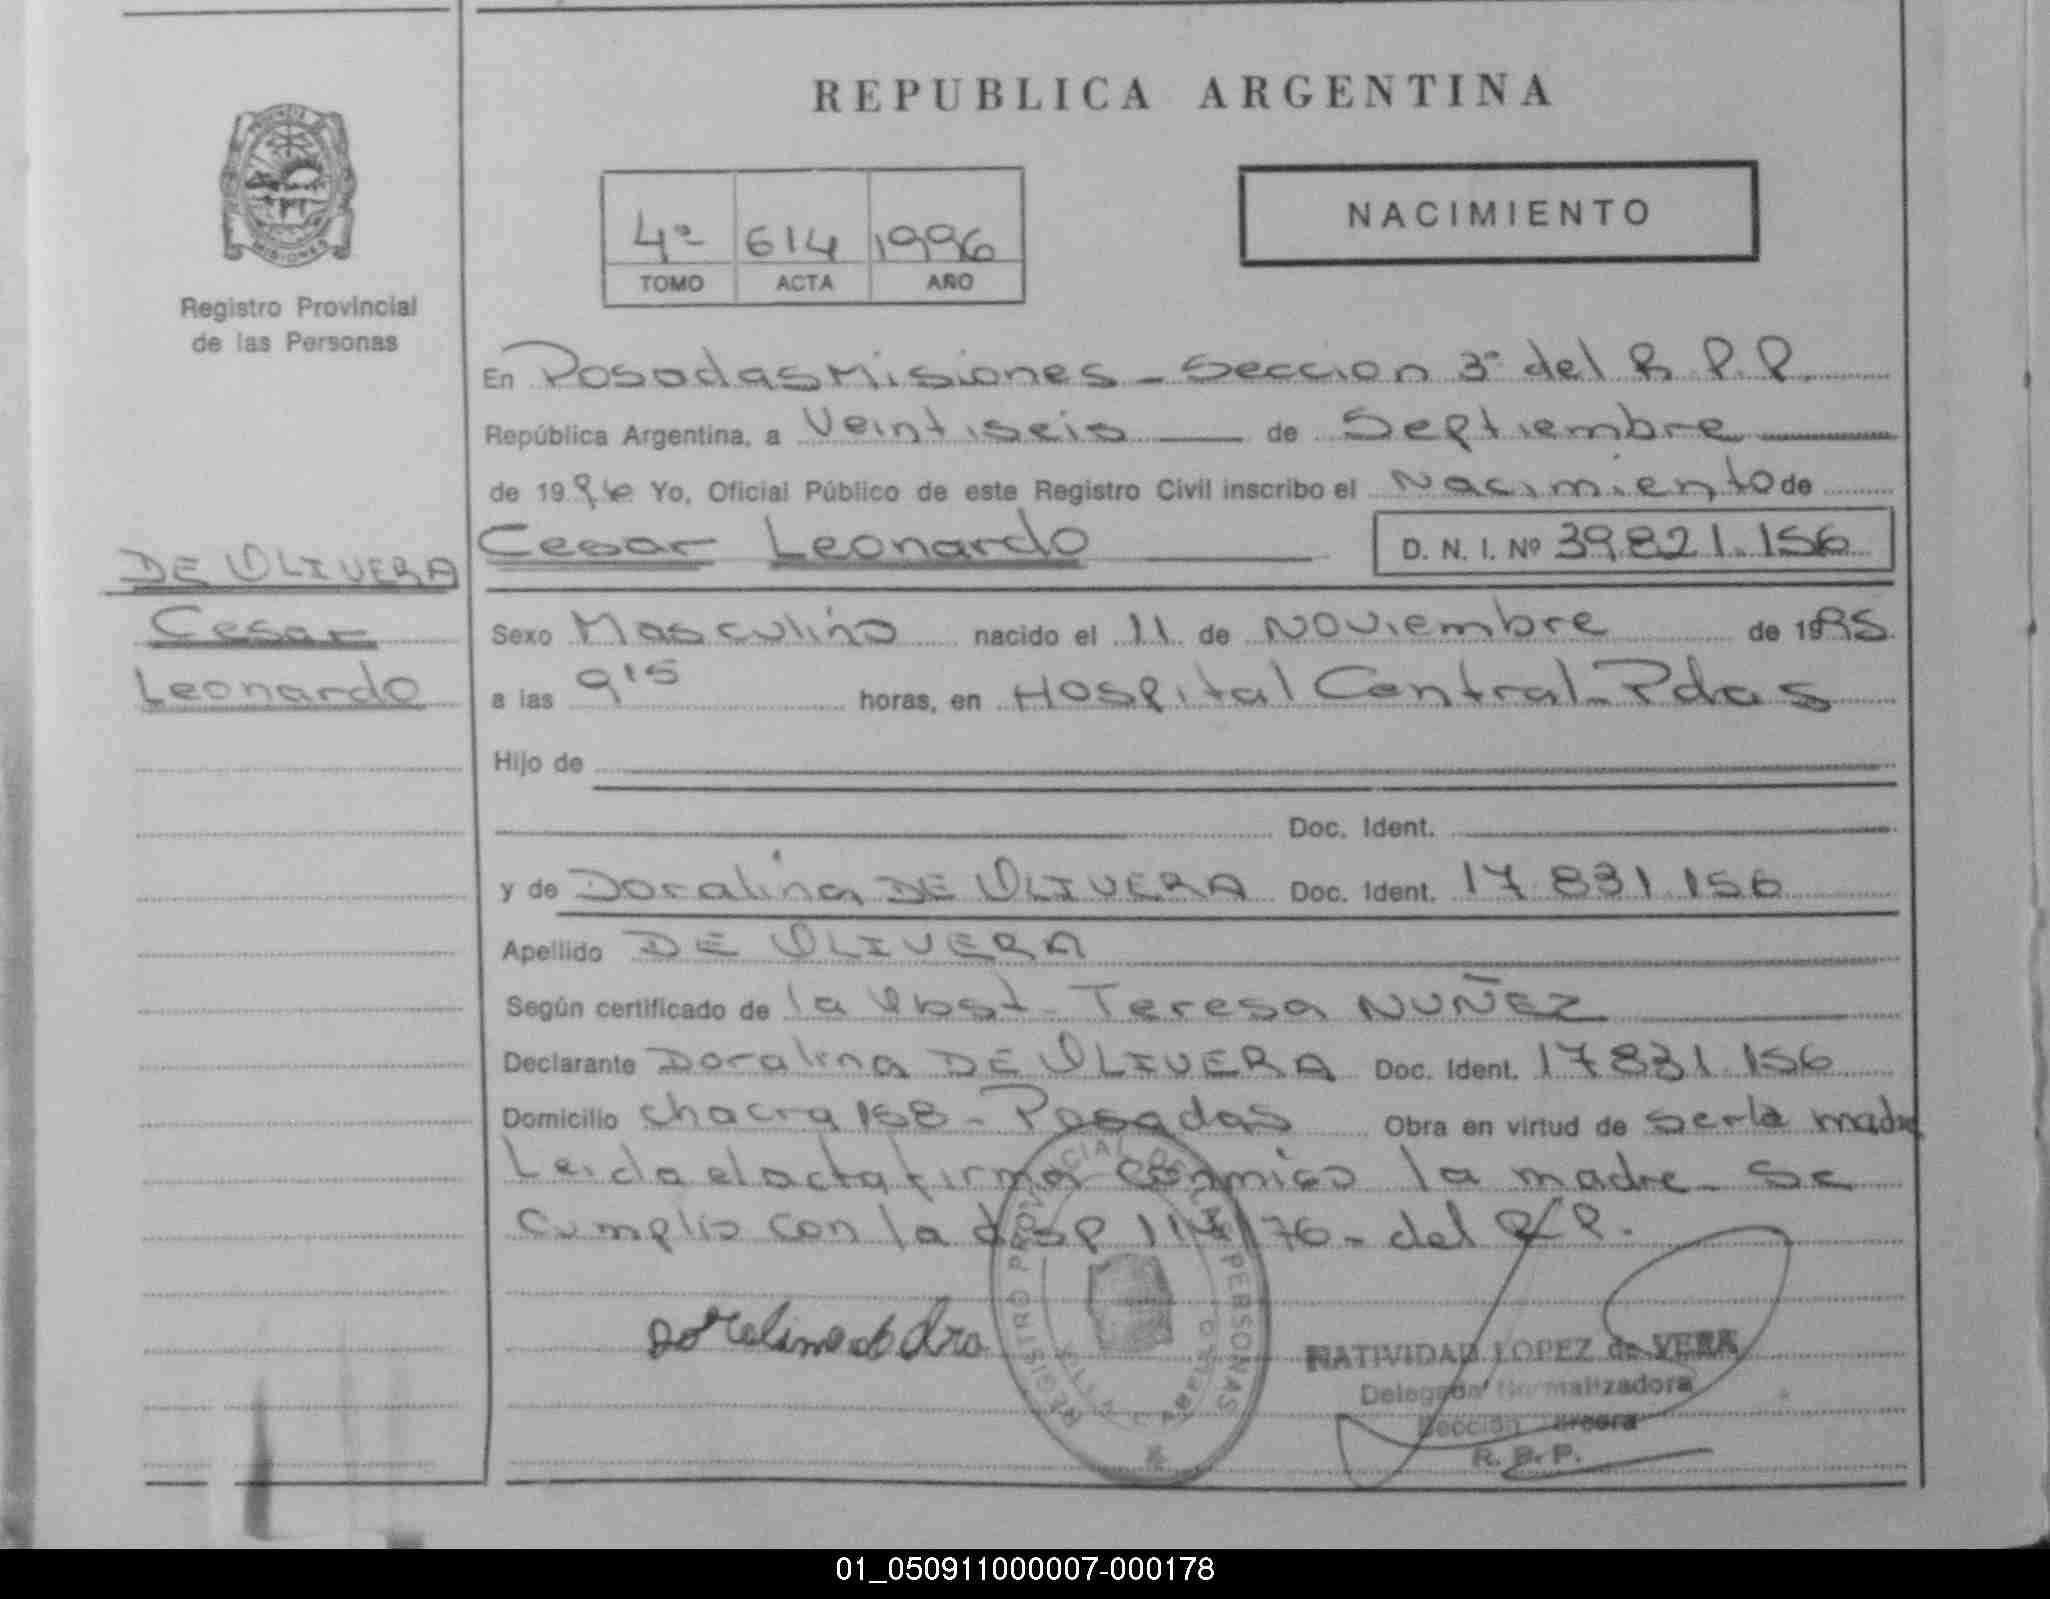 REPUBLICA ARGENTINA
NACIMIENTO
4º 614 1996
TOMO ACTA AÑO
Registro Provincial
de las Personas
En Posadas Misiones - Seccion 3º del R.P.P.
República Argentina, a Veintiseis de Septiembre
de 1996 Yo, Oficial Público de este Registro Civil inscribo el Nacimiento de
Cesar Leonardo D. N. I. Nº 39.821.156
DE OLIVERA
Cesar
Leonardo
Sexo Masculino nacido el 11 de Noviembre de 1995
a las 9'15 horas, en Hospital Central - Pdas
Hijo de
Doc. Ident.
y de Doralina DE OLIVERA Doc. Ident. 17 831 156
Apellido DE OLIVERA
Según certificado de la Obst - Teresa NUÑEZ
Declarante Doralina DE OLIVERA Doc. Ident. 17 831 156
Domicilio chacra 158 - Posadas Obra en virtud de ser la madre
Leida el acta firma conmigo la madre - Se
cumplio con la disp 114/76 - del
REGISTRO PROVINCIAL DE LAS PERSONAS
NATIVIDAD LOPEZ de VERA
Delegada Normalizadora
Sección Tercera
R. P. P.
01_050911000007-000178